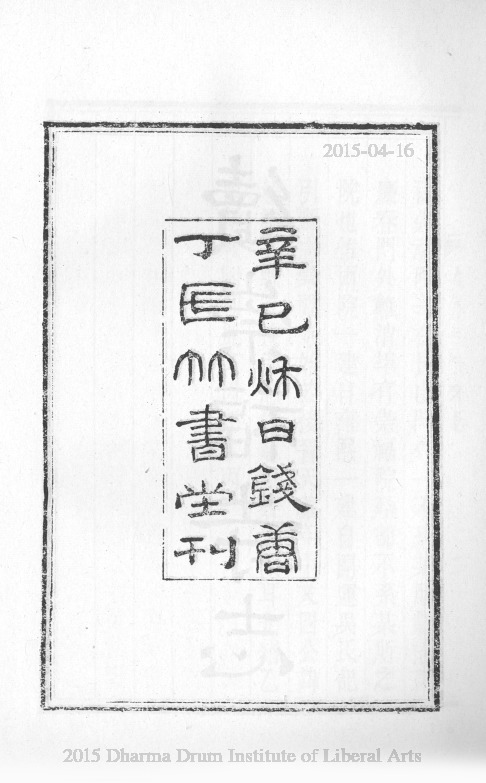 2015-04-16
辛巳秌日錢唐
丁氏竹書堂刊
2015 Dharma Drum Institute of Liberal Arts